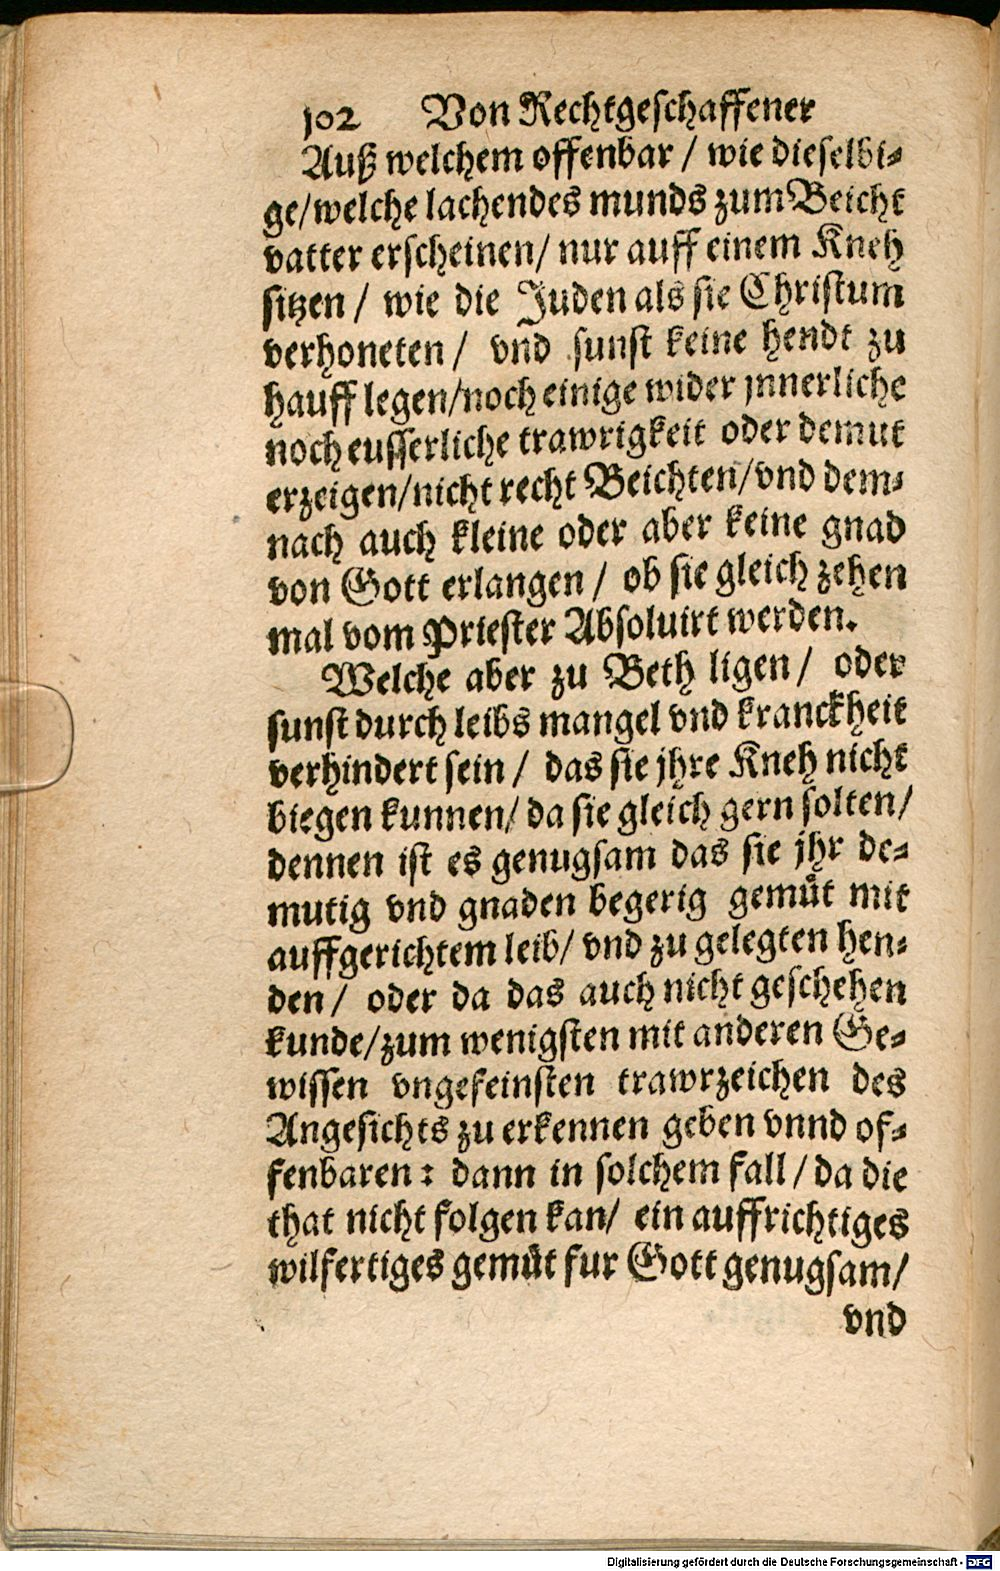 102 Von Rechtgeschaffener
Auß welchem offenbar / wie dieselbi⸗
ge/welche lachendes munds zum Beicht
vatter erscheinen/ nur auff einem Kneh
sitzen / wie die Juden als sie Christum
verhoneten / vnd sunst keine hendt zu
hauff legen/noch einige wider jnnerliche
noch eusserliche trawrigkeit oder demut
erzeigen/nicht recht Beichten/vnd dem⸗
nach auch kleine oder aber keine gnad
von Gott erlangen / ob sie gleich zehen
mal vom Priester Absoluirt werden.
Welche aber zu Beth ligen / oder
sunst durch leibs mangel vnd kranckheit
verhindert sein / das sie jhre Kneh nicht
biegen kunnen/ da sie gleich gern solten/
dennen ist es genugsam das sie jhr de⸗
mutig vnd gnaden begerig gemuͤt mit
auffgerichtem leib/ vnd zu gelegten hen⸗
den / oder da das auch nicht geschehen
kunde/zum wenigsten mit anderen Ge⸗
wissen vngefeinsten trawrzeichen des
Angesichts zu erkennen geben vnnd of⸗
fenbaren : dann in solchem fall / da die
that nicht folgen kan/ ein auffrichtiges
wilfertiges gemuͤt fur Gott genugsam/
vnd
Digitalisierung gefördert durch die Deutsche Forschungsgemeinschaft - DFG